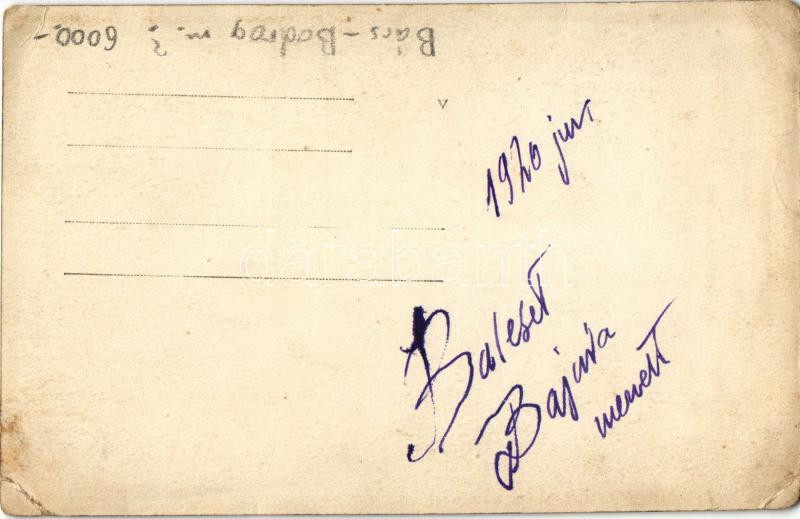 Bács-Bodrog m. ? 6000.-
1920 jun
Baleset
Bajura
menet
darabanth